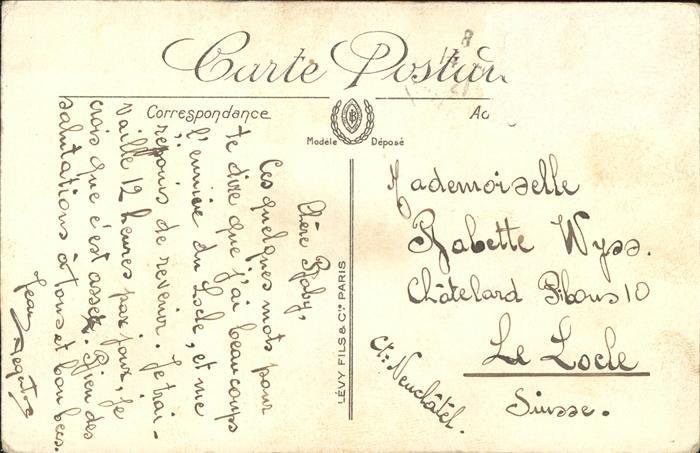 Carte Postale
Correspondance
Modèle Déposé
LÉVY FILS & Cie PARIS
Chère Baby,
Ces quelques mots pour
te dire que j'ai beaucoups
l'ennuie du Locle, et me
réjouis de revenir. Je trai-
vaille 12 heures par jour, je
crois que c'est assez. Bien des
salutations à tous et bon becs.
Jean
Mademoiselle
Babette Wyss.
Châtelard 10
Le Locle
Ct. Neuchâtel.
Suisse.